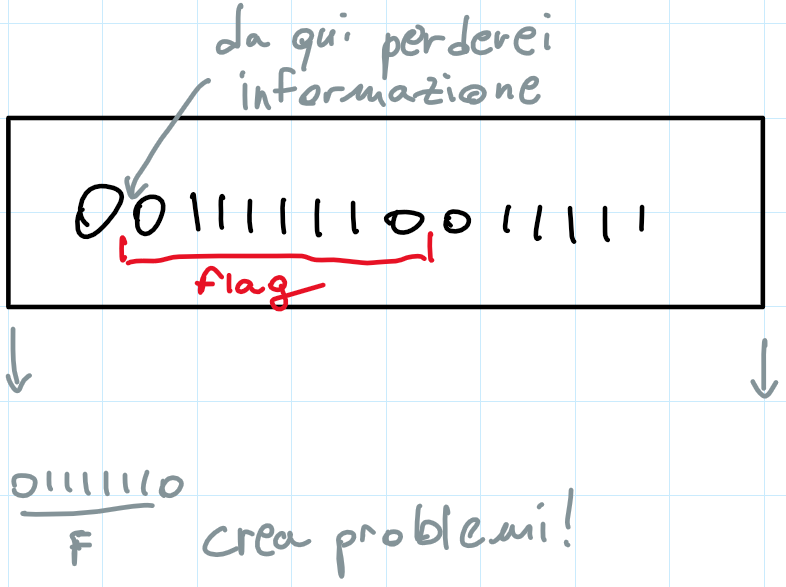 da qui perderei
informazione
001111110011111
flag
01111110
F
crea problemi!